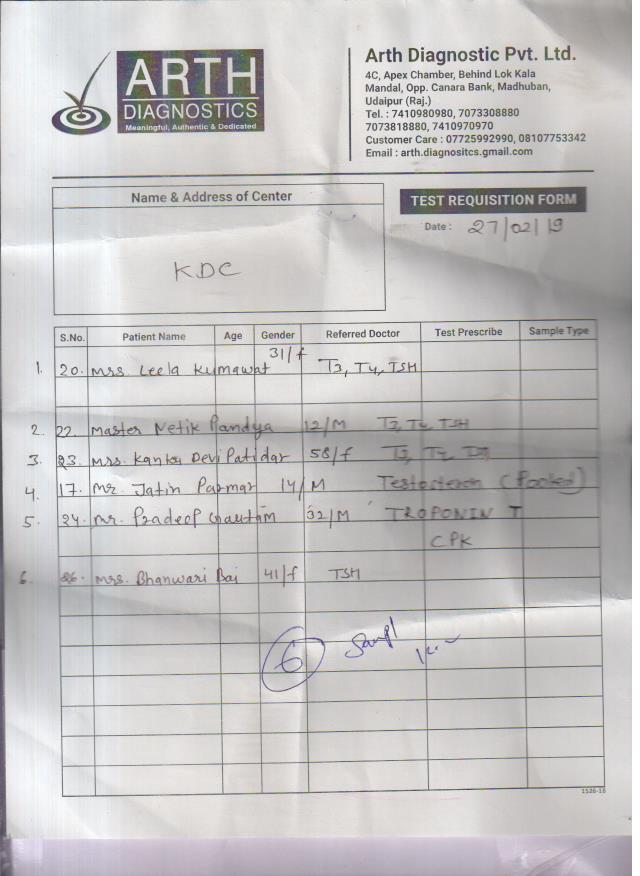 ARTH
DIAGNOSTICS
Meaningful, Authentic & Dedicated
Arth Diagnostic Pvt. Ltd.
4C, Apex Chamber, Behind Lok Kala
Mandal, Opp. Canara Bank, Madhuban,
Udaipur (Raj.)
Tel. : 7410980980, 7073308880
7073818880, 7410970970
Customer Care : 07725992990, 08107753342
Email : arth.diagnositcs.gmail.com
Name & Address of Center
KDC
TEST REQUISITION FORM
Date : 27/02/19
S.No. Patient Name Age Gender Referred Doctor Test Prescribe Sample Type
1. 20. Mrs. Leela Kumawat 31/f T3, T4, TSH
2. 22. Master Netik Pandya 12/M T3, T4, TSH
3. 23. Mrs. Kanku Devi Patidar 58/f T3, T4,
4. 17. Mr. Jatin Parmar 14/M Testosteron (Pooled)
5. 24. Mr. Pradeep Gautam 32/M TROPONIN T
CPK
6. 26. Mrs. Bhanwari Bai 41/f TSH
6 Sampl
1526-18